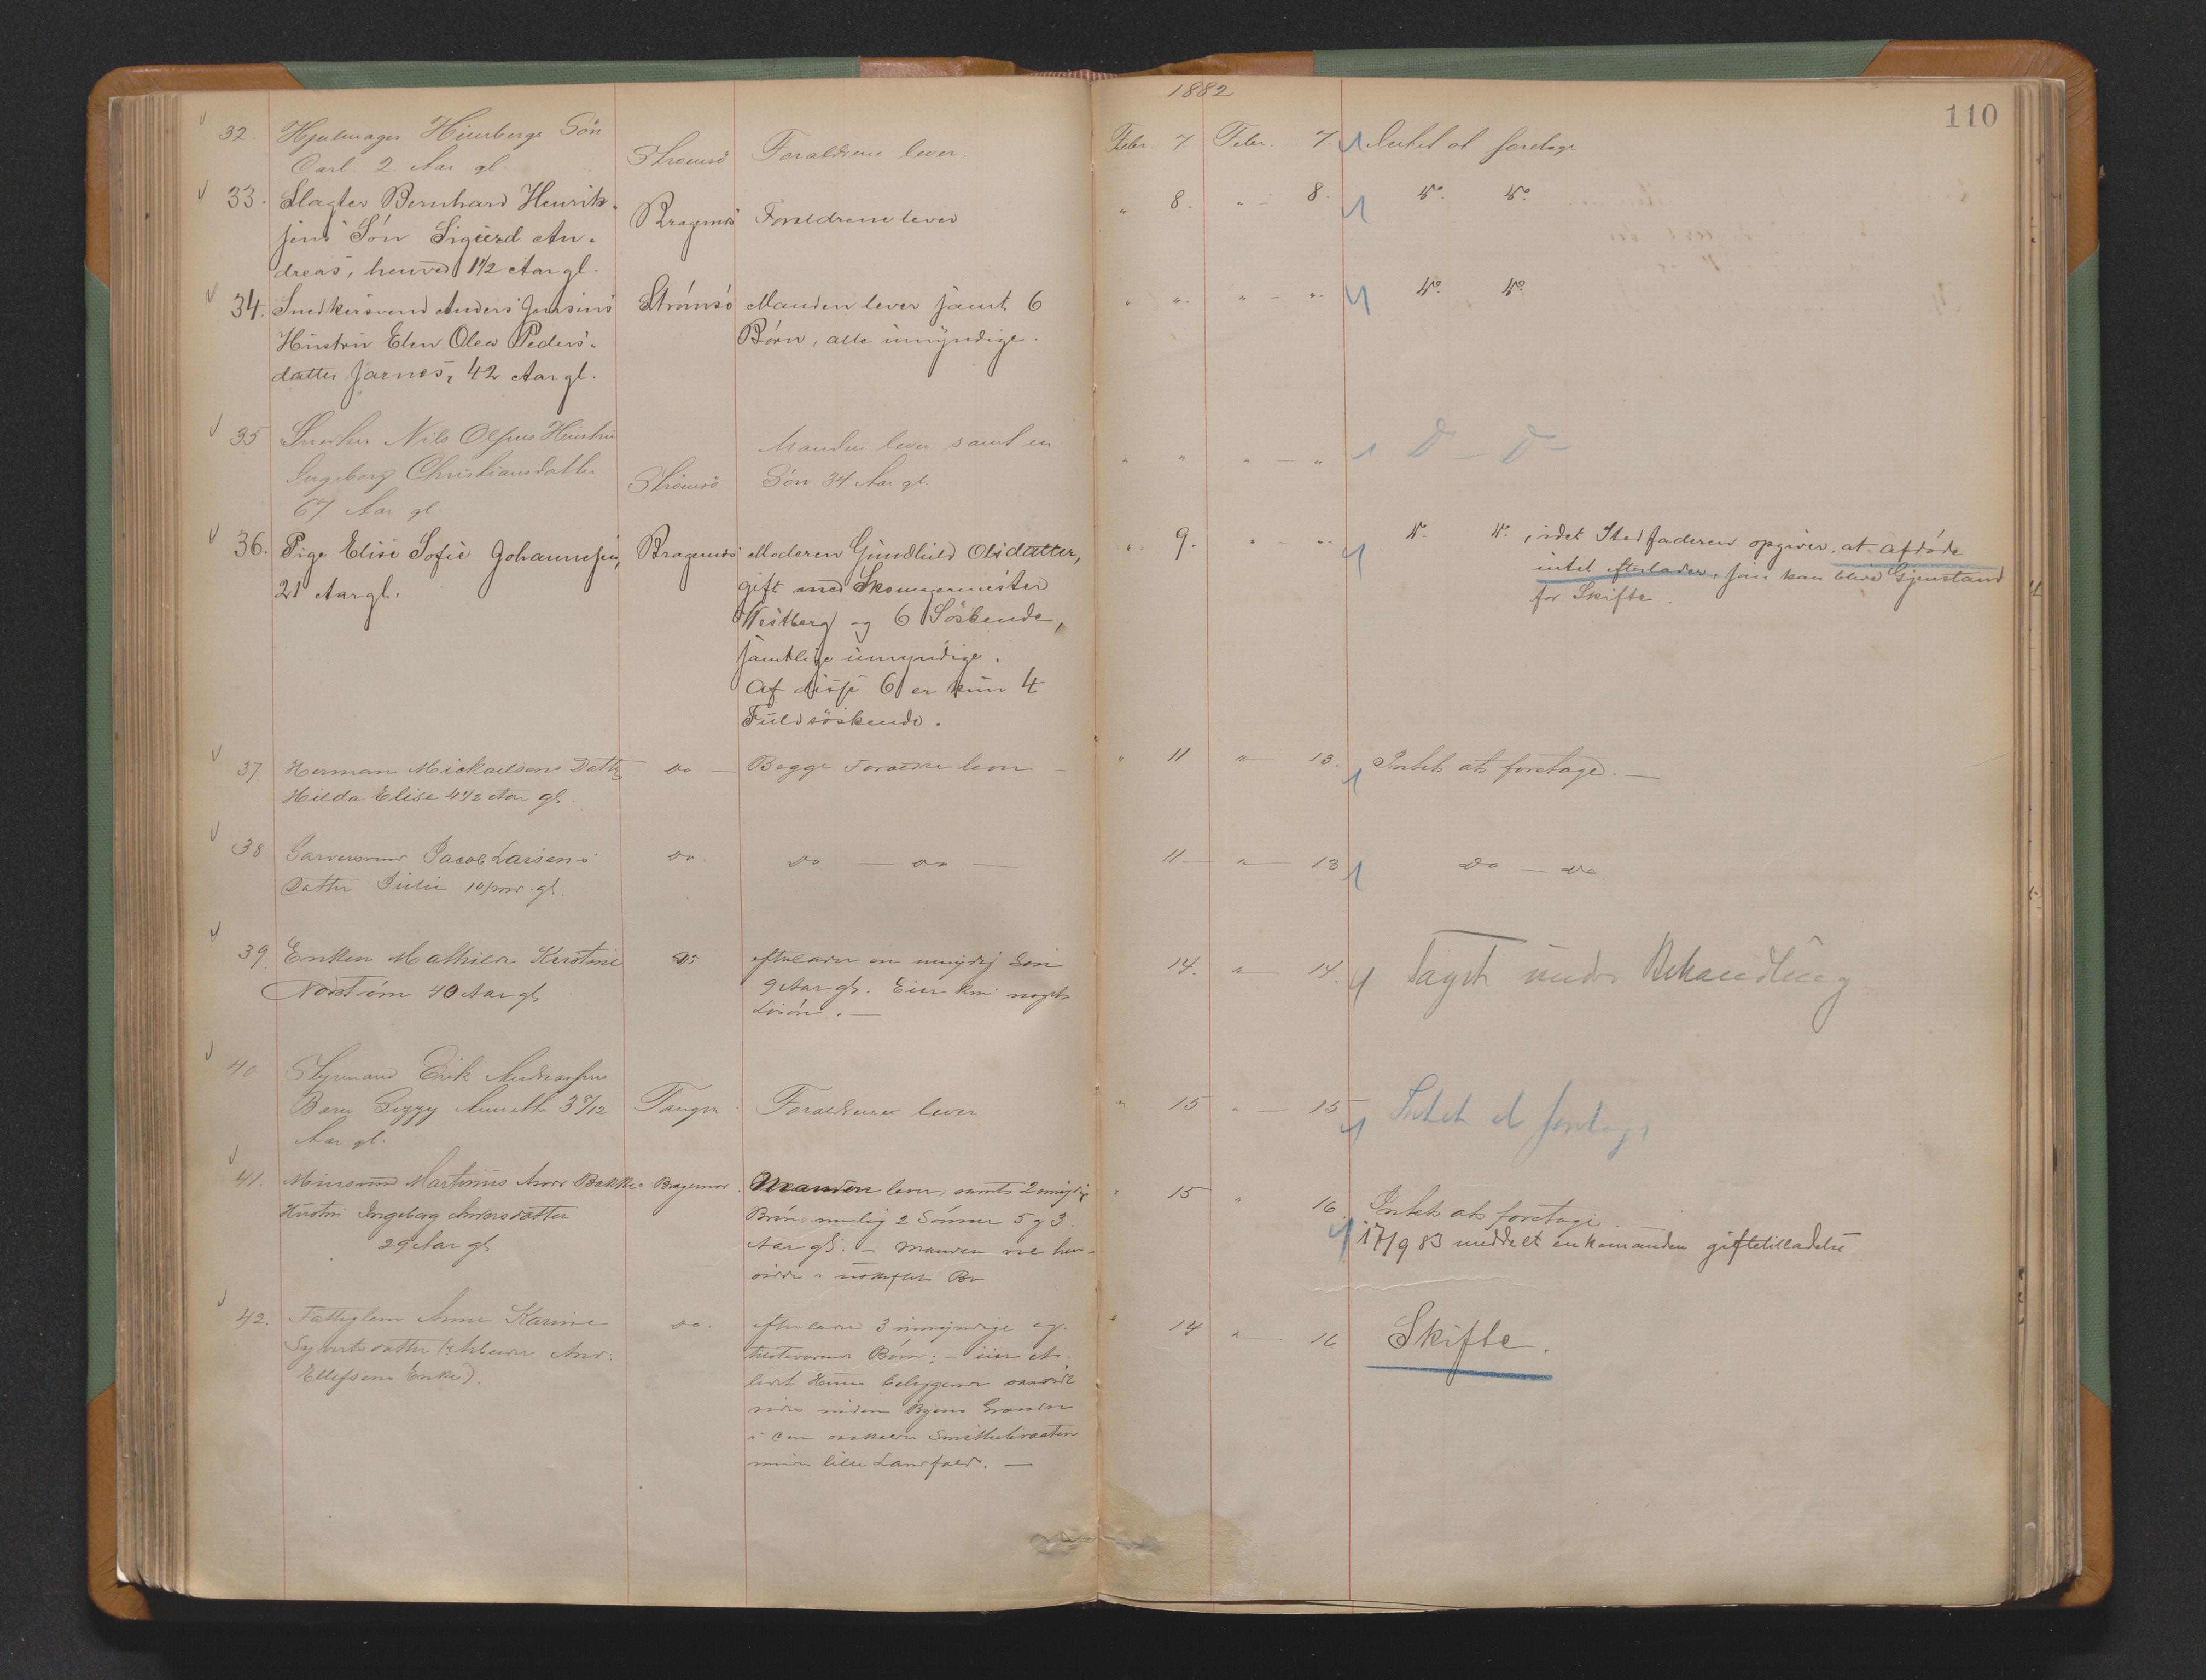 1882
110
32. Hjulmager Himbergs Søn Strømsö Forældrene lever. Febr. 7. Febr. 7. Intet at foretage
Carl. 2 Aar gl.
33. Slagter Bernhard Henrik- Bragernæs Forældrene lever " 8. " - 8. do. do.
sens Søn Sigurd An-
dreas, henved 1 1/2 Aar gl.
34. Snedkersvend Anders Jensens Strömsö Manden lever samt 6 " " " - " do. do.
Hustru Elen Olea Peders- Börn, alle umyndige.
datter Jarnes, 42 Aar gl.
35 Snedker Nils Olsens Hustru Manden lever samt en " " " - " D - D -
Ingeborg Christiansdatter Strømsö Søn 34 Aar gl.
67 Aar gl.
36. Pige Elise Sofie Johannesen, Bragernæs Moderen Gundhild Olsdatter, " 9. " - " do. do., idet Stedfaderen opgiver, at afdöde
21 Aar gl. gift med Skomagermester intet efterlader, som kan blive Gjenstand
Westberg og 6 Söskende, for Skifte.
samtlige umyndige.
Af disse 6 er kun 4
Fuldsöskende.
37. Herman Mickaelsens Datter do - Begge Forældre lever - " 11 " 13. Intet at foretage. -
Hilda Elise 4 1/2 Aar gl.
38 Garversvend Jacob Larsens do. do - do - 11 - " - 13 do - do.
Datter Julie 10 mdr. gl.
39. Enken Mathilde Kirstine do efterlader en umyndig Søn 14. " - 14. Taget under Behandling
Nordström 40 Aar gl. 9 Aar gl. Eier kun noget
Lösöre. -
40 Styrmand Erik Andreassens
Barn Lizzy Annette 3 9/12 Tangen. Forældrene lever " 15 " - 15 Intet at foretage
Aar gl.
41. Martinius Bakkes Bragernæs. Manden lever, samt 2 umyndige " 15 " 16. Intet at foretage.
Hustru Ingeborg Andersdatter Börn, nemlig 2 Sönner 5 og 3 17/9 83 meddelt enkemanden giftetilladelse
29 Aar gl. Aar gl. - Manden vil hen-
sidde i uskiftet Bo
42. Fattiglem Anne Karine do. efterlader 3 umyndige og " 14 " - 16 Skifte.
(Arbeider And: Börn; -
Ellefsens Enke). Huus beliggende
Byens Grændse
i den saakaldte
lille Landfald. -